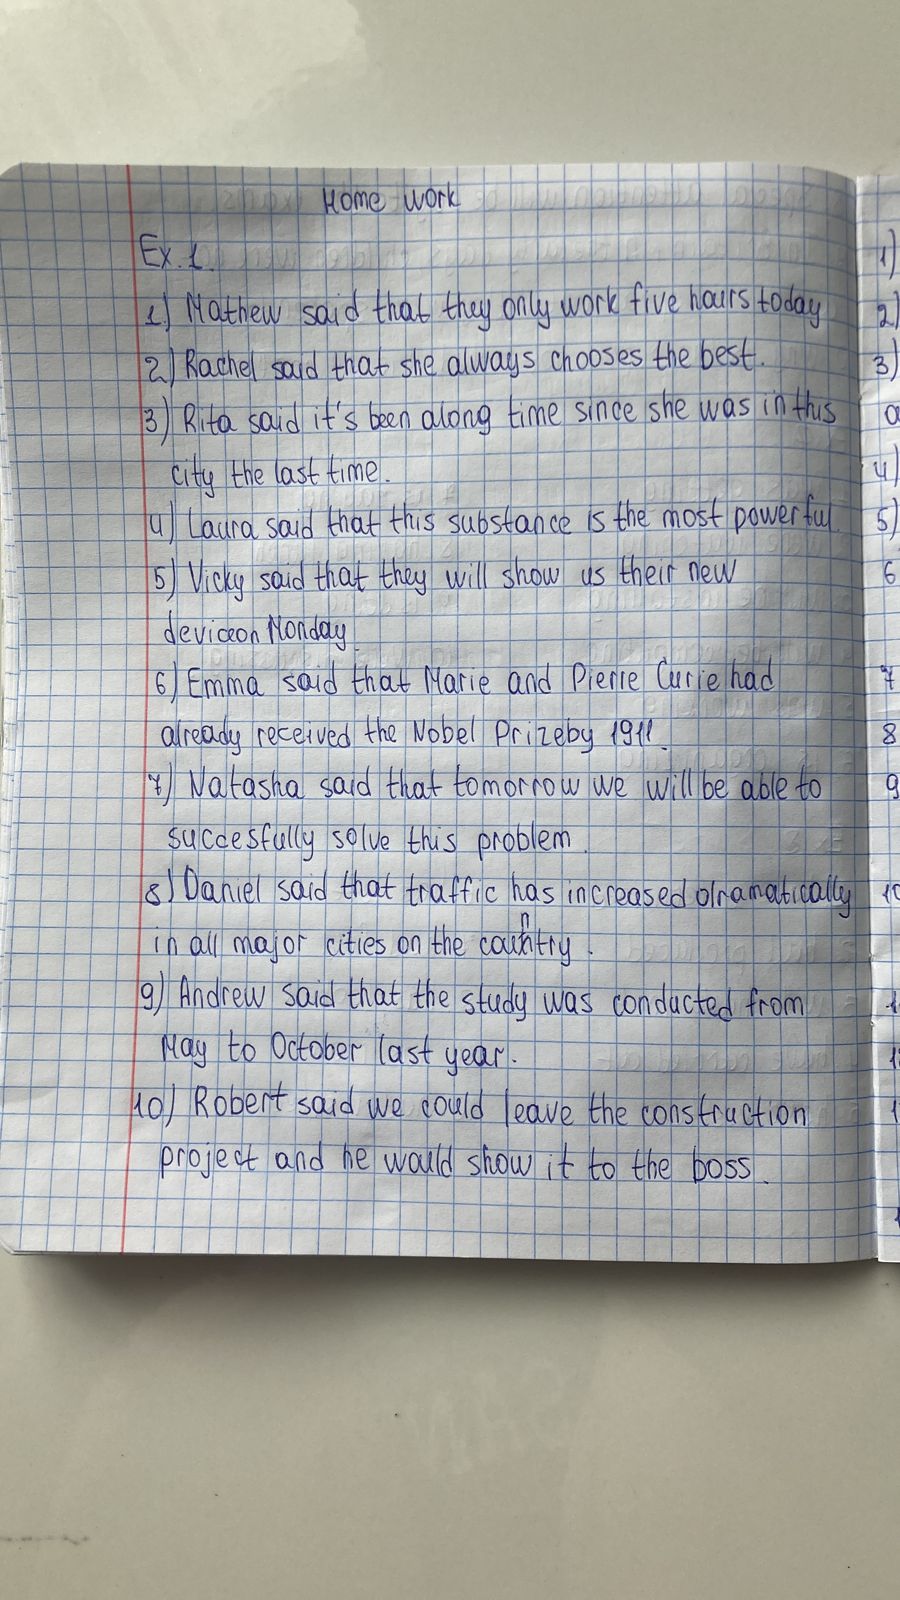 Home work
Ex. 1.
1) Mathew said that they only work five hours today
2) Rachel said that she always chooses the best.
3) Rita said it's been along time since she was in this
city the last time.
4) Laura said that this substance is the most powerful.
5) Vicky said that they will show us their new
deviceon Monday.
6) Emma said that Marie and Pierre Curie had
already received the Nobel Prizeby 1911.
7) Natasha said that tomorrow we will be able to
succesfully solve this problem.
8) Daniel said that traffic has increased dramatically
in all major cities on the country.
9) Andrew said that the study was conducted from
May to October last year.
10) Robert said we could leave the construction
project and he would show it to the boss.
1)
2)
3)
a
4)
5)
6
7
8
9
10